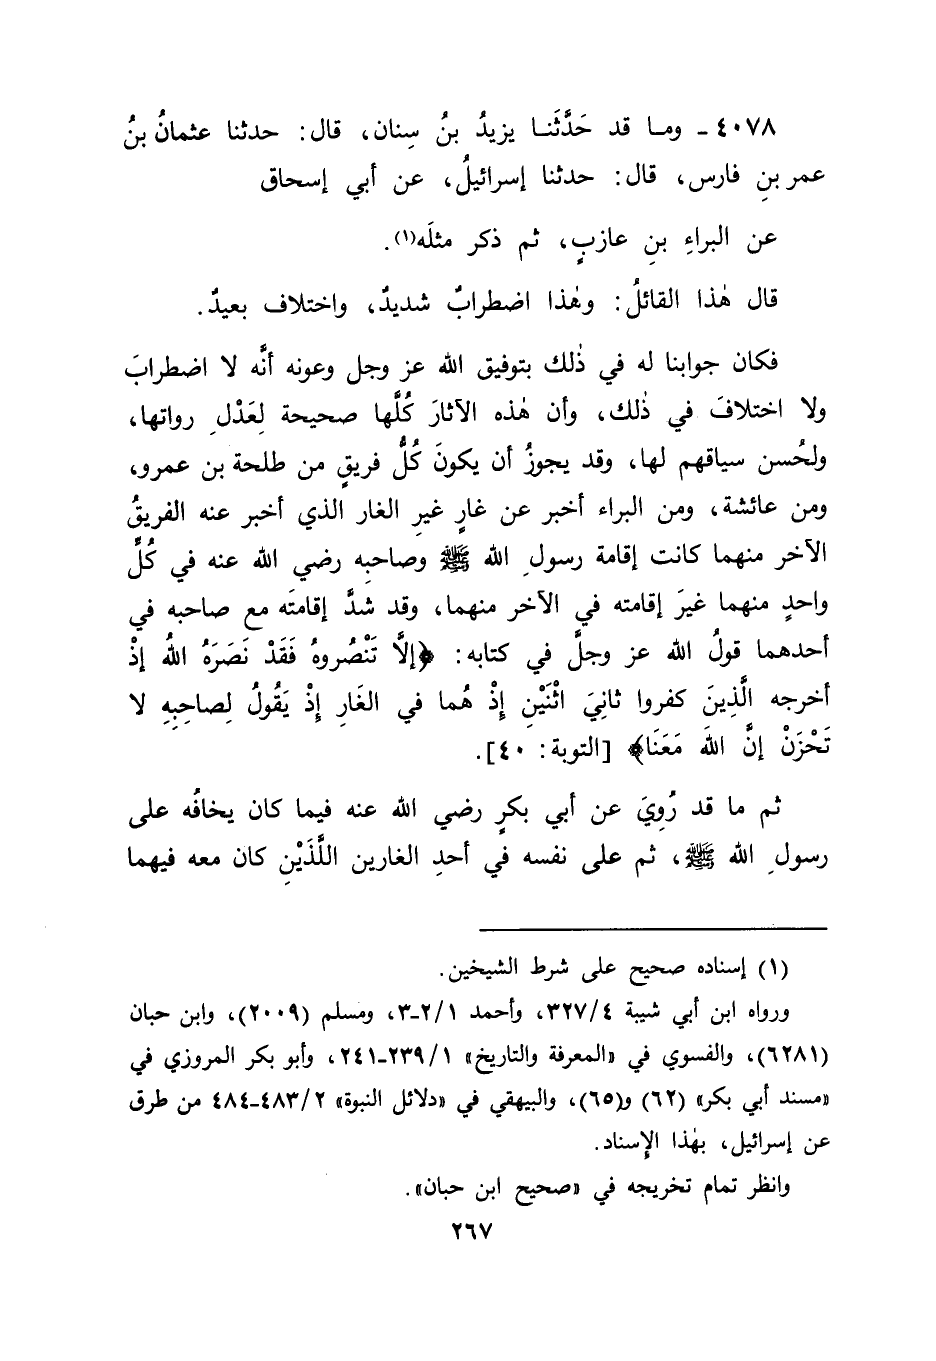 ٤٠٧٨ - وما قد حَدَّثَنا يزيدُ بنُ سِنان، قال: حدثنا عثمانُ بنُ
عمر بنِ فارس، قال: حدثنا إسرائيلُ، عن أبي إسحاق
عن البراءِ بنِ عازبٍ، ثم ذكر مثلَه(١).
قال هٰذا القائلُ: وهٰذا اضطرابٌ شديدٌ، واختلاف بعيدٌ.
فكان جوابنا له في ذٰلك بتوفيق الله عز وجل وعونه أنَّه لا اضطرابَ
ولا اختلافَ في ذٰلك، وأن هٰذه الآثارَ كُلَّها صحيحة لِعَدْلِ رواتها،
ولحُسن سياقهم لها، وقد يجوزُ أن يكونَ كُلُّ فريقٍ من طلحة بن عمرو،
ومن عائشة، ومن البراء أخبر عن غارٍ غيرِ الغار الذي أخبر عنه الفريقُ
الآخر منهما كانت إقامة رسولِ الله ﷺ وصاحبِه رضي الله عنه في كُلِّ
واحدٍ منهما غيرَ إقامته في الآخر منهما، وقد شدَّ إقامتَه مع صاحبه في
أحدهما قولُ الله عز وجلَّ في كتابه: ﴿إلَّا تَنْصُروهُ فَقَدْ نَصَرَهُ اللهُ إذْ
أخرجه الَّذِينَ كفروا ثانِيَ اثْنَيْنِ إذْ هُما في الغَارِ إذْ يَقُولُ لِصاحِبِهِ لا
تَحْزَنْ إنَّ اللهَ مَعَنَا﴾ [التوبة: ٤٠].
ثم ما قد رُوِيَ عن أبي بكرٍ رضي الله عنه فيما كان يخافُه على
رسولِ الله ﷺ، ثم على نفسه في أحدِ الغارين اللَّذَيْنِ كان معه فيهما
(١) إسناده صحيح على شرط الشيخين.
ورواه ابن أبي شيبة ٣٢٧/٤، وأحمد ٢/١-٣، ومسلم (٢٠٠٩)، وابن حبان
(٦٢٨١)، والفسوي في «المعرفة والتاريخ» ٢٣٩/١-٢٤١، وأبو بكر المروزي في
«مسند أبي بكر» (٦٢) و(٦٥)، والبيهقي في «دلائل النبوة» ٤٨٣/٢-٤٨٤ من طرق
عن إسرائيل، بهٰذا الإسناد.
وانظر تمام تخريجه في «صحيح ابن حبان».
٢٦٧